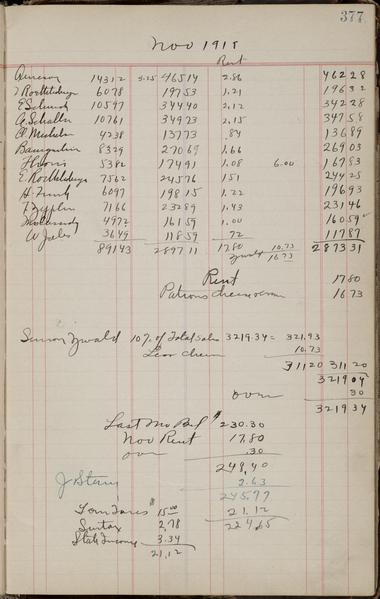 377
Nov 1918
Rent
Ameson 14312 3.25 46514 2.86 46228
6078 19753 1.21 19632
E Schmidt 10597 34440 2.12 34228
G. Schaller 10761 34973 2.15 34758
4238 13773 .84 13689
Baumgartner 8329 27069 1.66 26903
5382 17491 1.08 6.00 16783
E. 7562 24576 151 24425
H. Funk 6097 19815 1.22 19693
7166 23289 1.43 23146
4972 16159 1.00 16059
W 3649 11859 72 11787
89143 289711 1780 10.73 287331
Zwald 16.73
Rent 1780
Patrons 1673
Zwald 10% of Total Sales 3219.34 = 321.93
Less 10.73
31120 311 20
3219 04
over 30
3219 34
Last Mo Bal $ 230.30
Nov Rent 17.80
over .30
248.40
J. 2.63
245.77
Town Taxes $ 15.00 21.12
Surtax 2.78 224.65
State Income 3.34
21.12